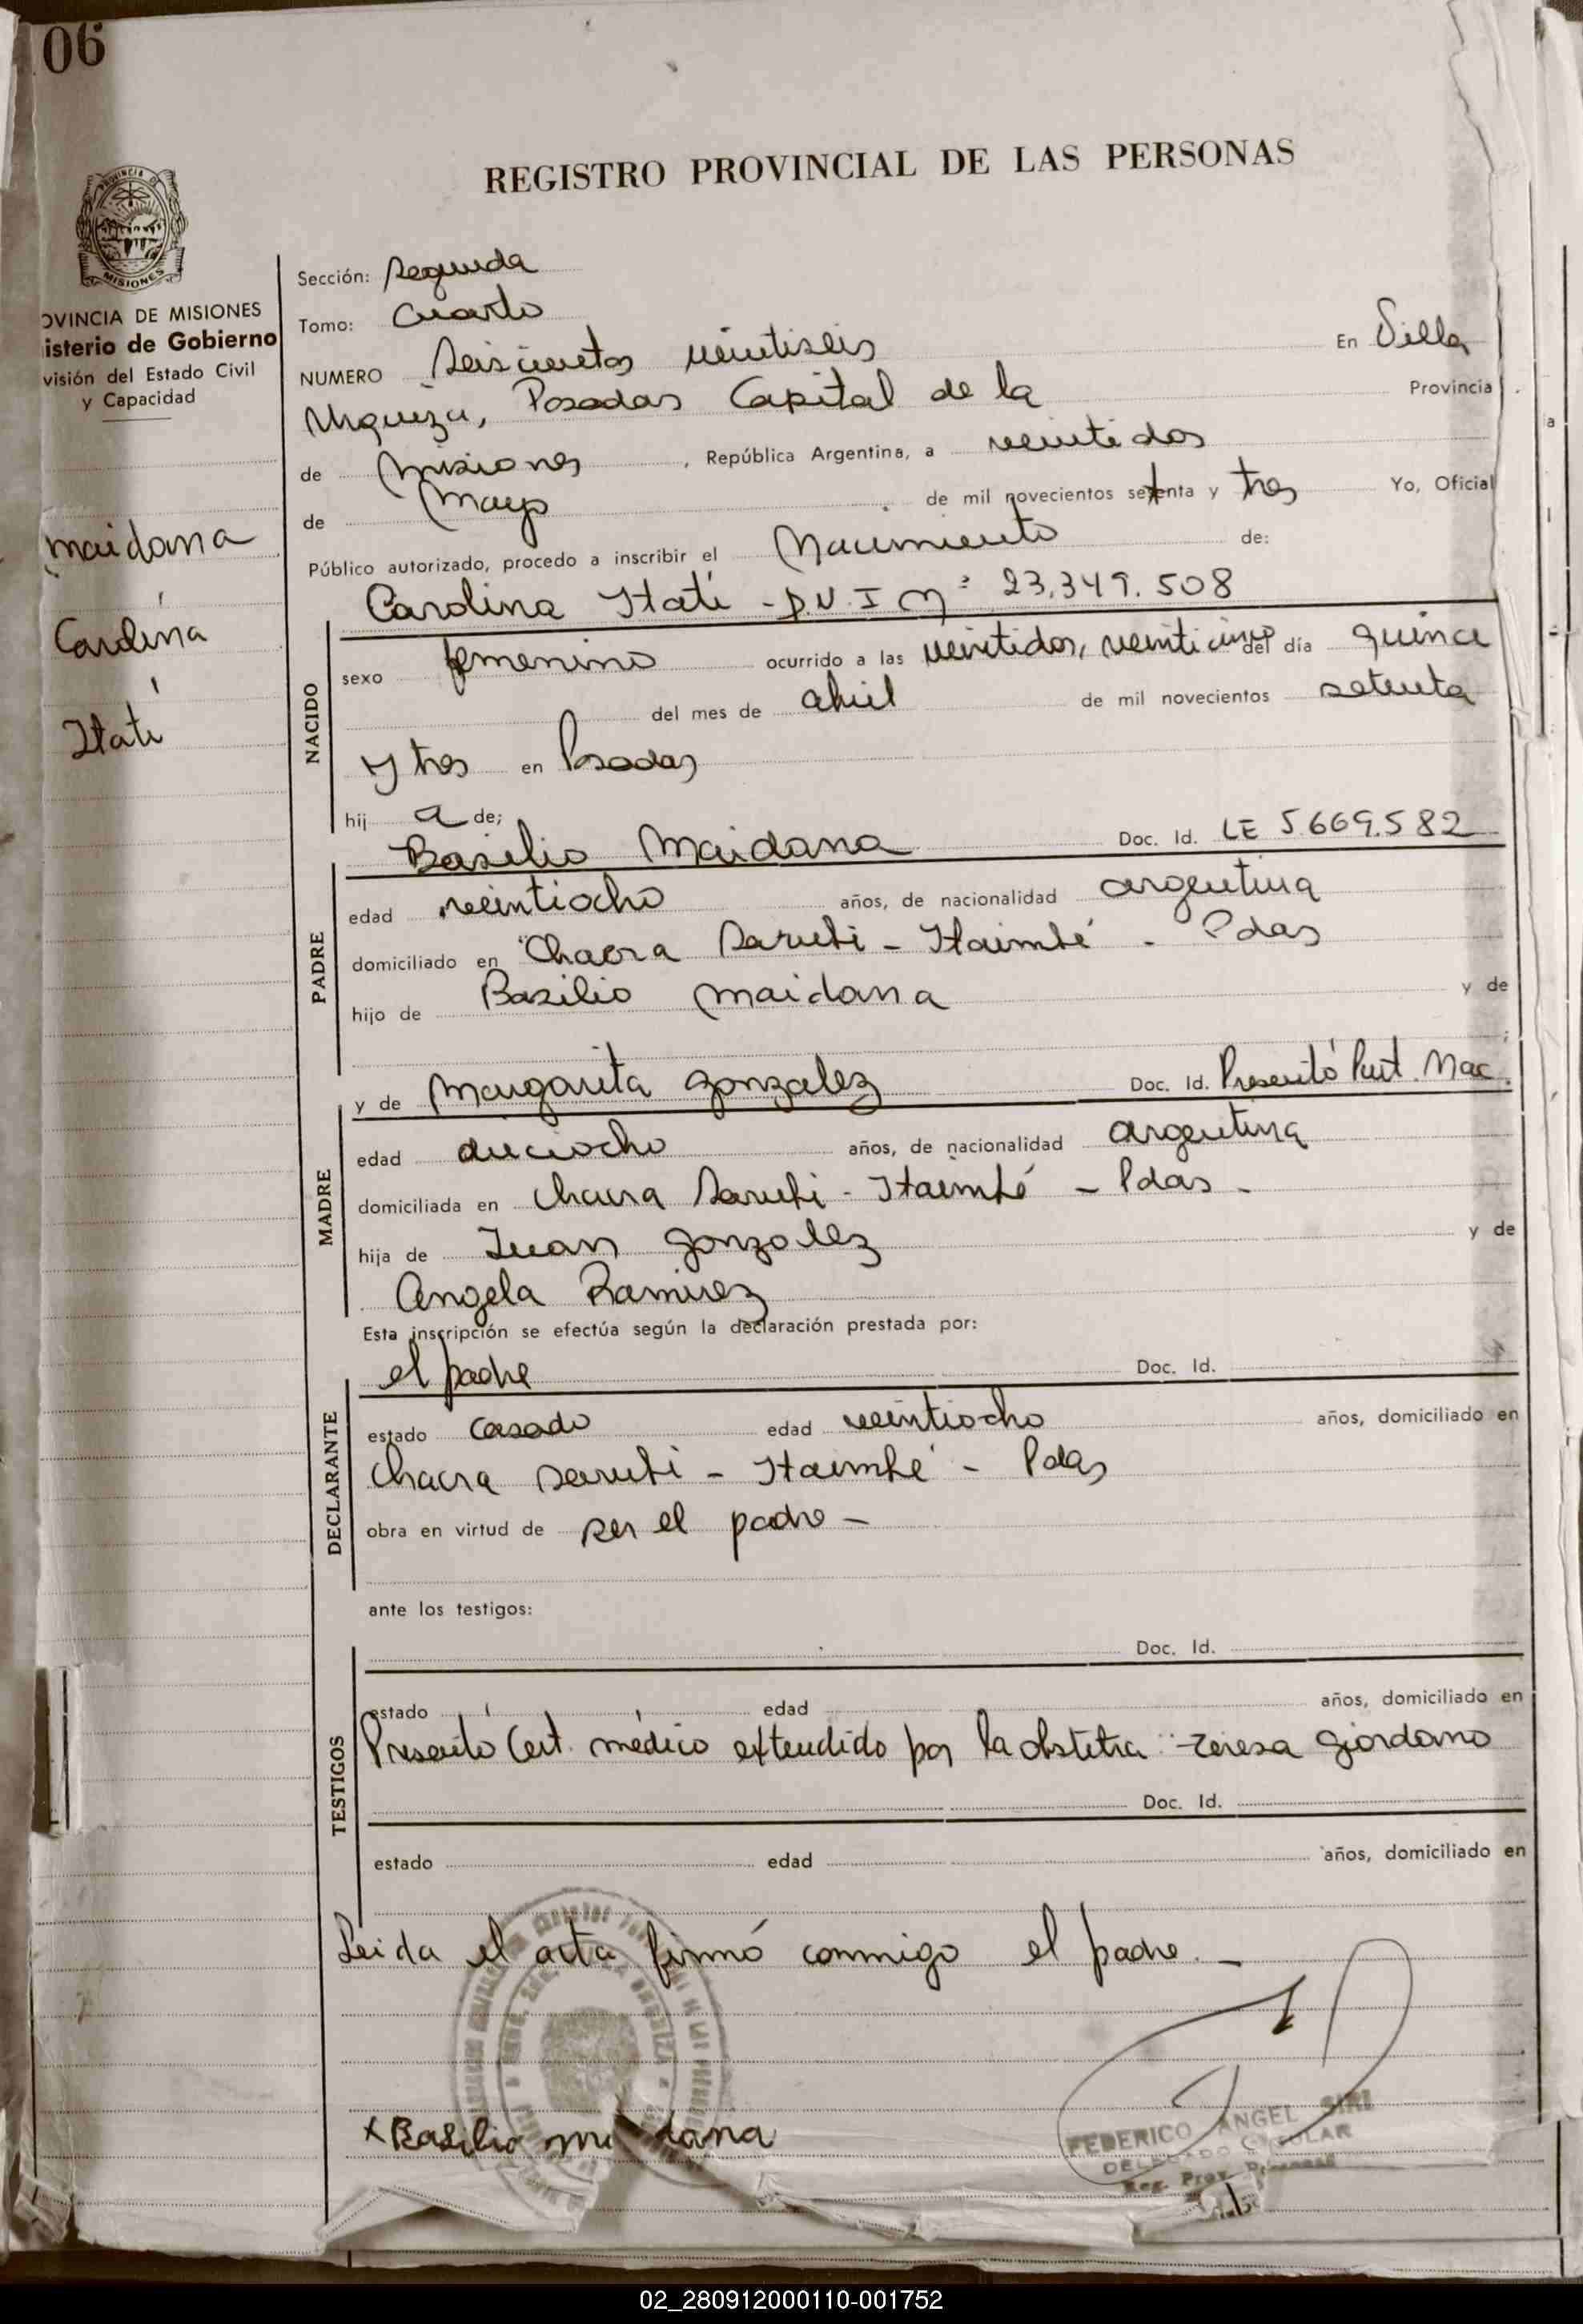 06
REGISTRO PROVINCIAL DE LAS PERSONAS
MISIONES
OVINCIA DE MISIONES
isterio de Gobierno
visión del Estado Civil
y Capacidad
maidana
Carolina
Itatí
Sección: Segunda
Tomo: Cuarto
NUMERO Seiscientos veintiseis En Villa
Urquiza, Posadas Capital de la Provincia
de Misiones, República Argentina, a veintidos
de Mayo de mil novecientos setenta y tres Yo, Oficial
Público autorizado, procedo a inscribir el Nacimiento de:
Carolina Itatí - D.N.I Nº 23.349.508
NACIDO
sexo femenino ocurrido a las veintidos, veinticinco del día quince
del mes de abril de mil novecientos setenta
y tres en Posadas
hij a de;
Basilio Maidana Doc. Id. LE 5.669.582
PADRE
edad veintiocho años, de nacionalidad argentina
domiciliado en Chacra Saruti - Itaimbé - Pdas
hijo de Basilio Maidana y de
y de Margarita Gonzalez Doc. Id. Presentó Part. Nac.
MADRE
edad dieciocho años, de nacionalidad argentina
domiciliada en Chacra Saruti - Itaimbé - Pdas -
hija de Juan Gonzalez y de
Angela Ramirez
Esta inscripción se efectúa según la declaración prestada por:
el padre Doc. Id.
DECLARANTE
estado casado edad veintiocho años, domiciliado en
Chacra Saruti - Itaimbé - Pdas
obra en virtud de ser el padre -
ante los testigos:
Doc. Id.
TESTIGOS
estado edad años, domiciliado en
Presentó Cert. médico extendido por la obstetra: Teresa Giordano
Doc. Id.
estado edad años, domiciliado en
Leida el acta firmó conmigo el padre. -
x Basilio maidana
FEDERICO ANGEL SIRI
DELEGADO TITULAR
Reg. Prov. Personas
02_280912000110-001752